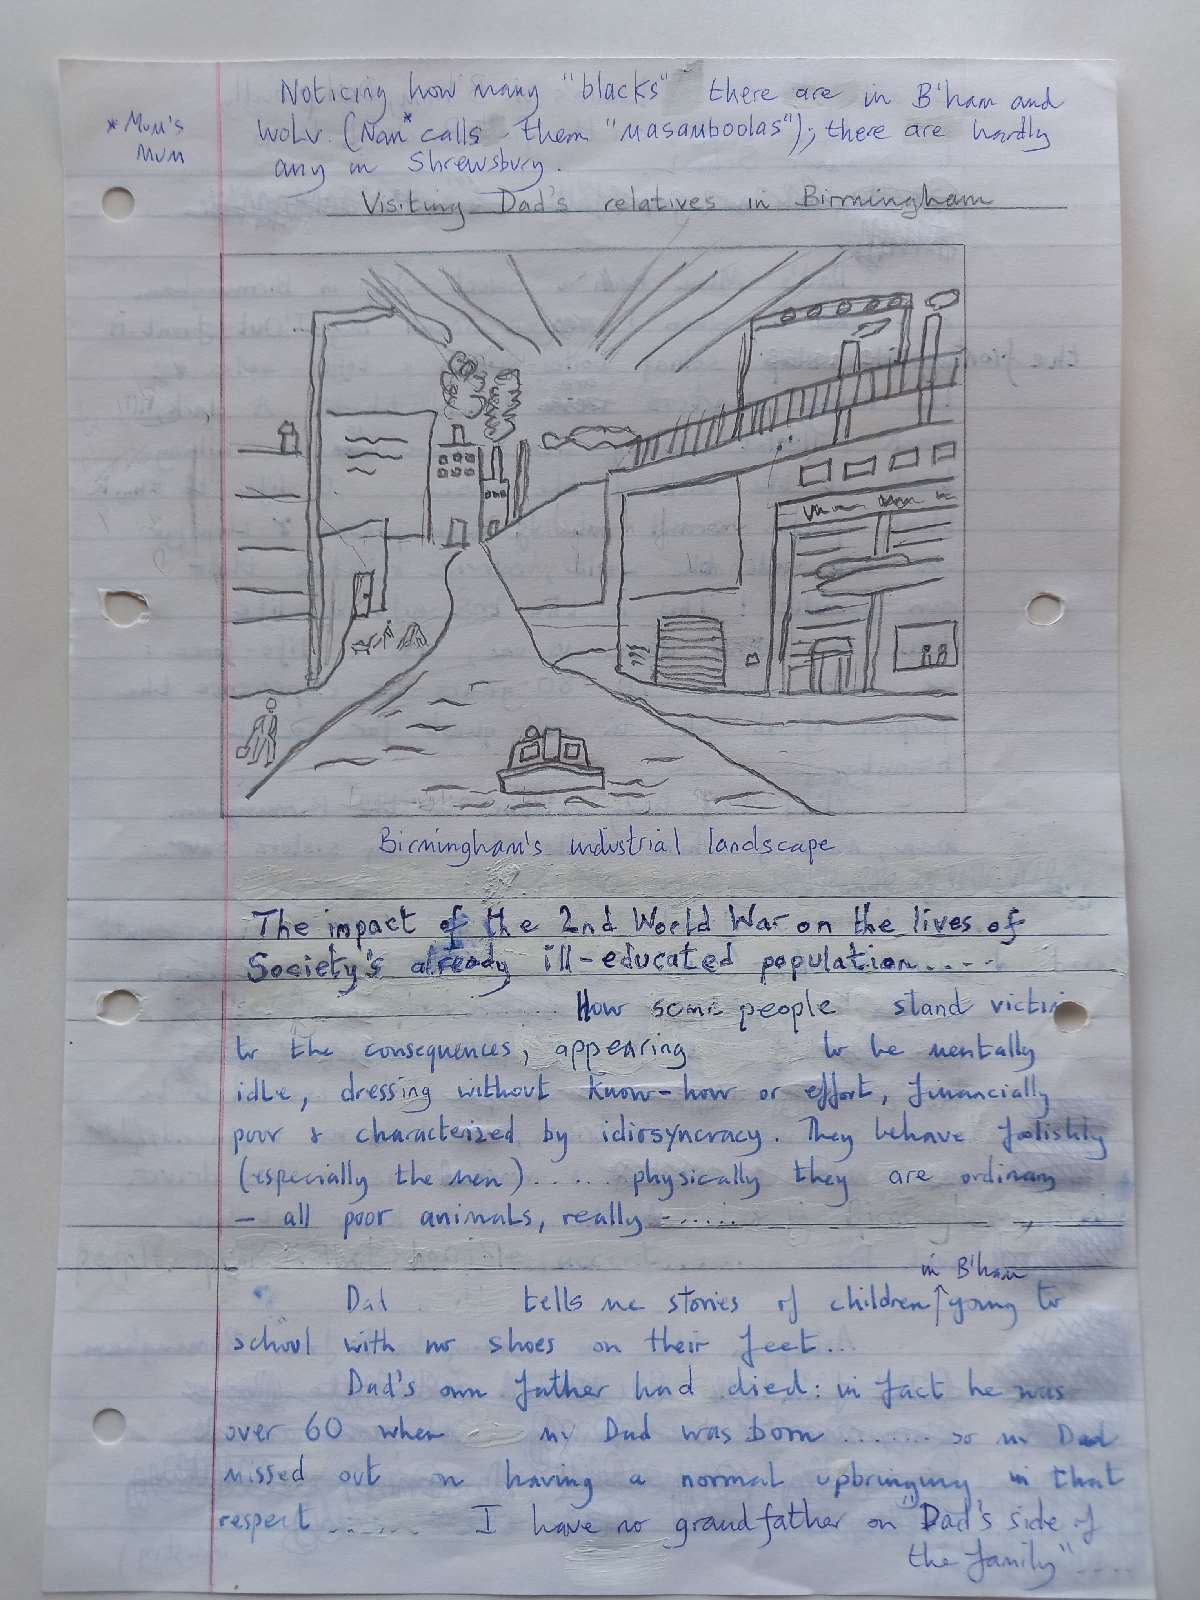 Noticing how many "blacks" there are in B'ham and
* Mum's
Mum
Wolv. (Nan* calls them "masamboolas"); there are hardly
any in Shrewsbury.
Visiting Dad's relatives in Birmingham
Birmingham's industrial landscape
The impact of the 2nd World War on the lives of
Society's already ill-educated population.....
How some people stand victim
to the consequences, appearing to be mentally
idle, dressing without know-how or effort, financially
poor & characterized by idiosyncracy. They behave foolishly
(especially the men)...... physically they are ordinary
- all poor animals, really -......
in B'ham
Dad tells me stories of children going to
school with no shoes on their feet...
Dad's own father had died: in fact he was
over 60 when my Dad was born ........ so my Dad
missed out on having a normal upbringing in that
respect ........ I have no grandfather on "Dad's side of
the family"....